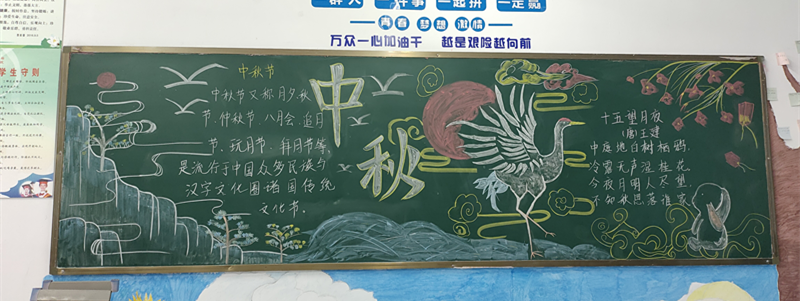 一群人 一件事 一起拼 一定赢
青春 梦想 激情
万众一心加油干 越是艰险越向前
学生守则
中秋节
中秋节又称月夕、秋
节、仲秋节、八月会、追月
节、玩月节、拜月节等，
是流行于中国众多民族与
汉字文化圈诸国传统
文化节。
中秋
十五望月夜
(唐)王建
中庭地白树栖鸦，
冷露无声湿桂花。
今夜月明人尽望，
不知秋思落谁家